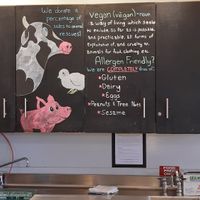 We donate a
percentage of
sales to animal
rescues!
Vegan (vēgan) - noun
a way of living which seeks
to exclude, as far as is possible
and practicable, all forms of
exploitation of, and cruelty to,
animals for food, clothing, etc.
Allergen Friendly?
We are COMPLETELY free of:
*Gluten
*Dairy
*Eggs
*Peanuts & Tree Nuts
*Sesame